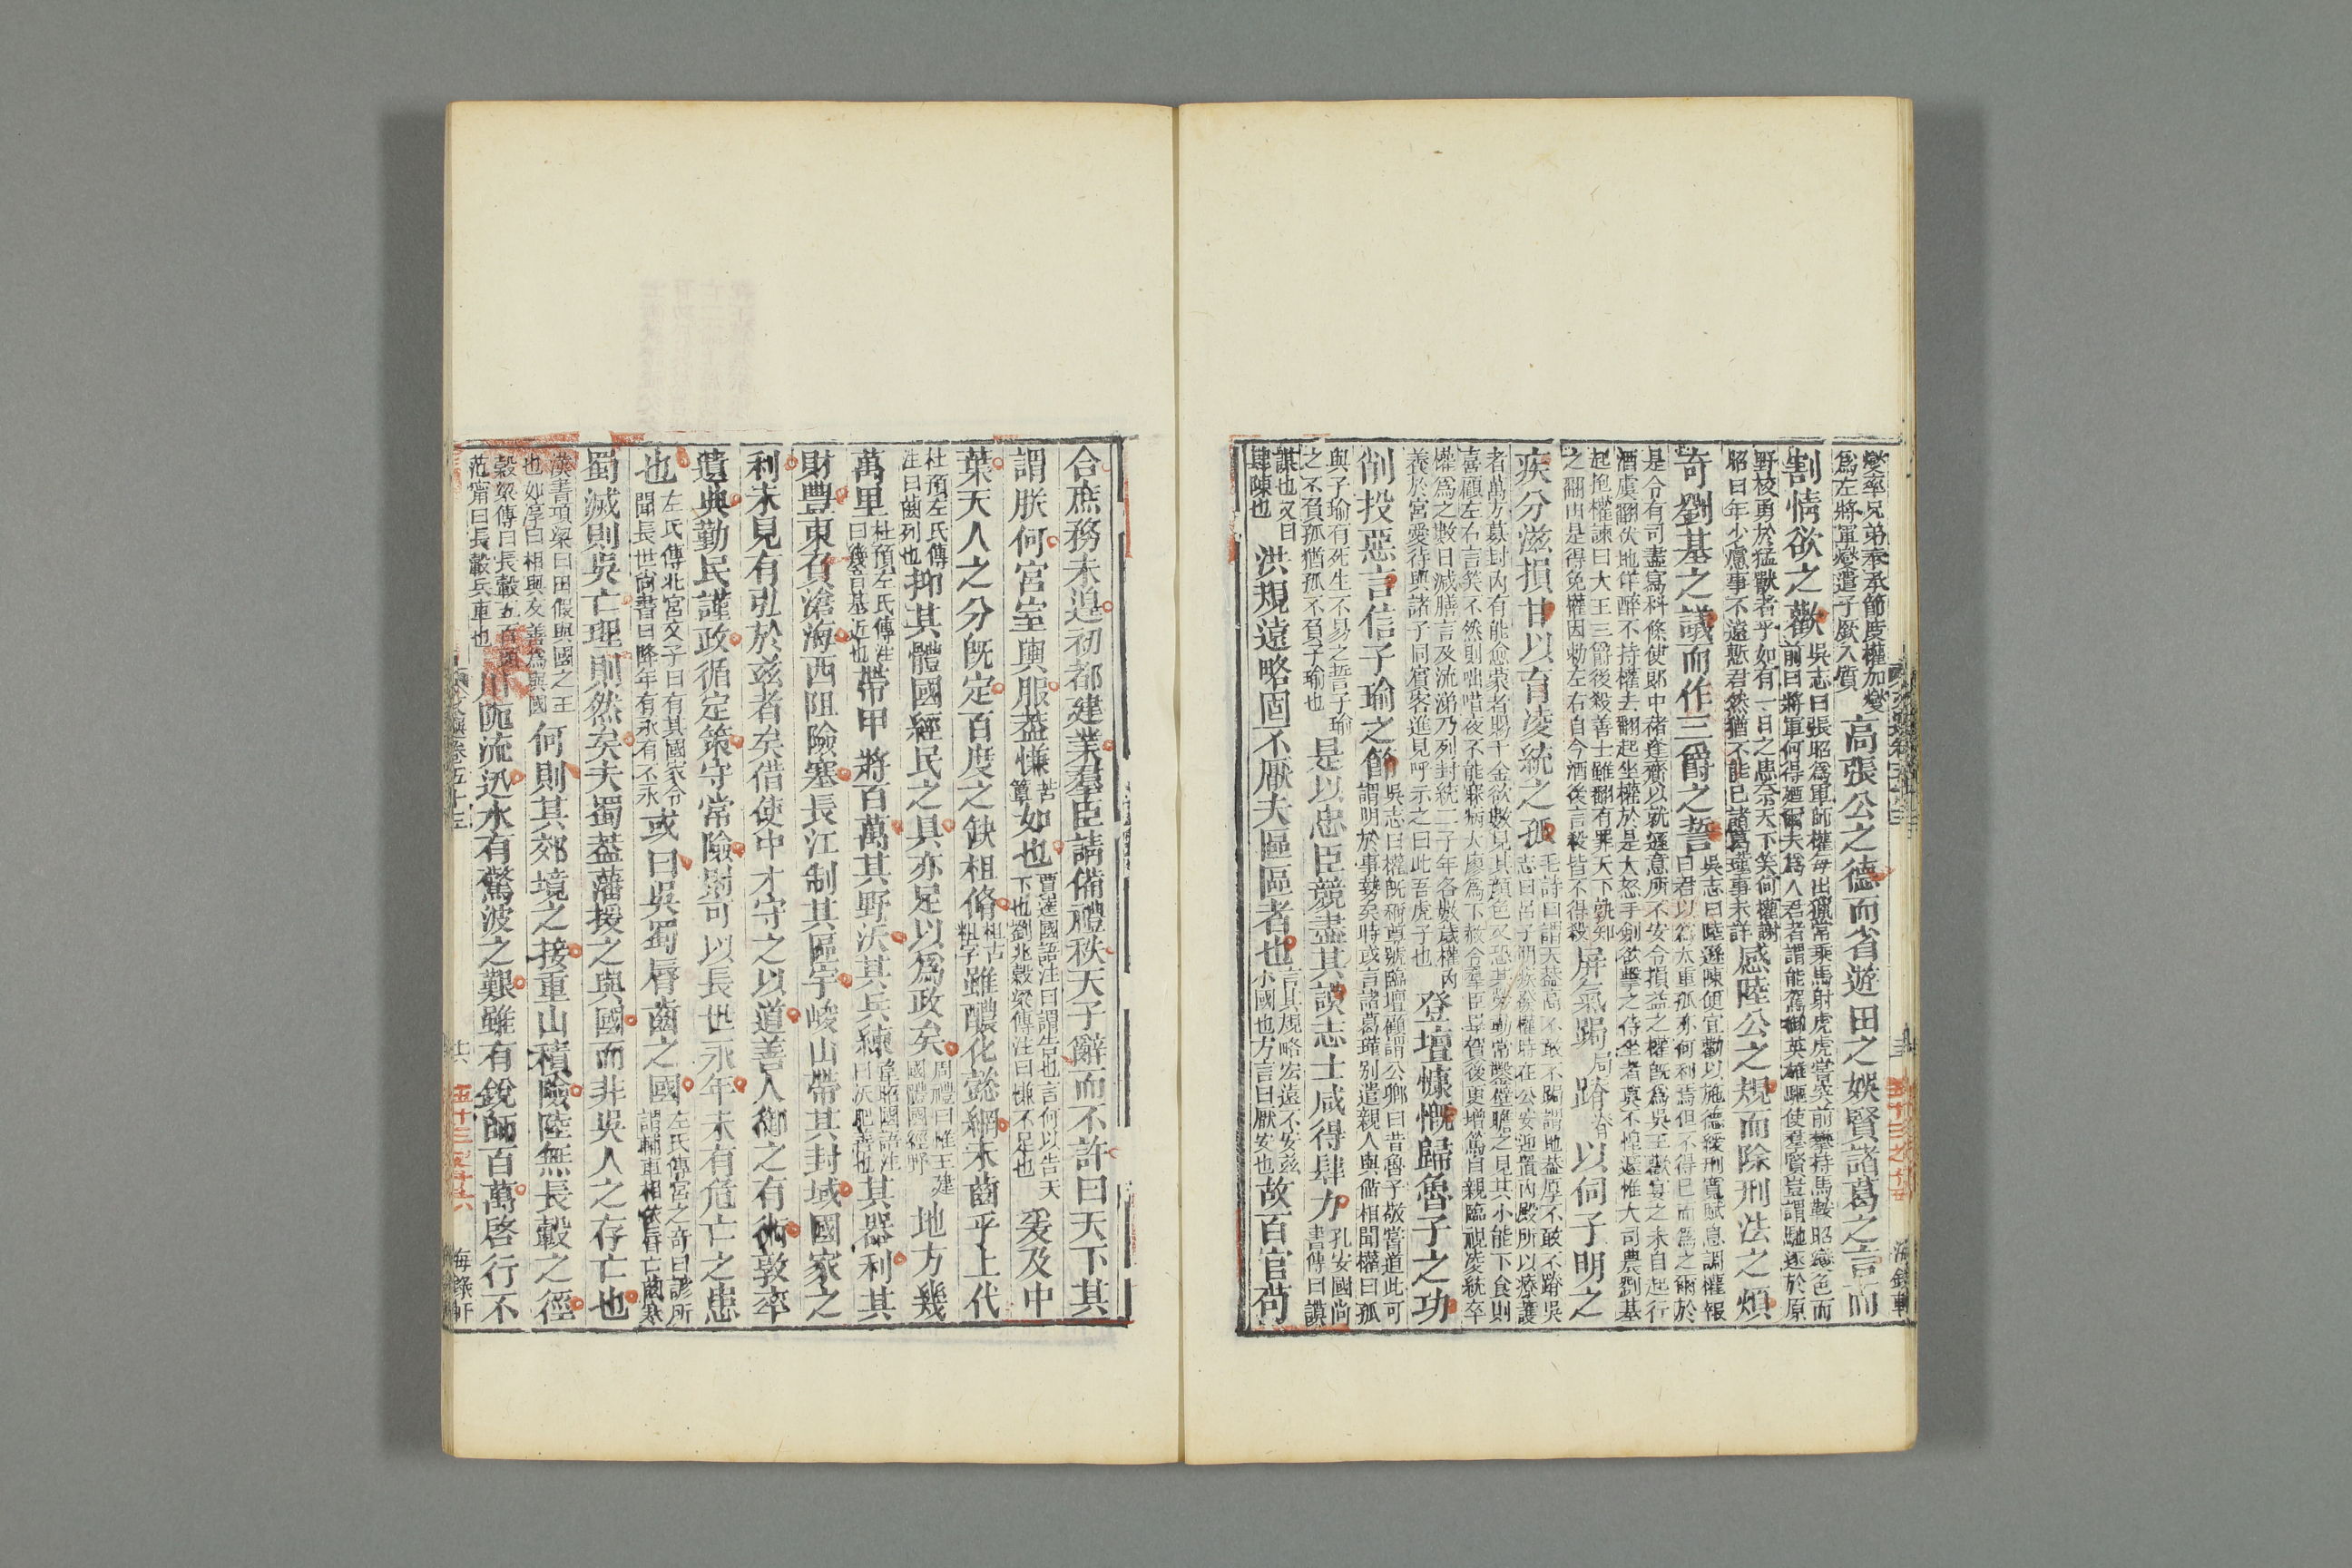 燮率兄弟奉承節度權加燮
爲左將軍燮遣子廞入質
高張公之德而省遊田之娛賢諸葛之言而
割情欲之歡
吳志曰張昭爲軍師權每出獵常乘馬射虎虎嘗突前攀持馬鞍昭變色而
前曰將軍何得爾夫爲人君者謂能駕御英雄驅使羣賢豈謂馳逐於原
野校勇於猛獸者乎如有一日之患奈天下笑何權謝
昭曰年少慮事不遠慙君然猶不能已諸葛瑾事未詳
感陸公之規而除刑法之煩
奇劉基之議而作三爵之誓
吳志曰陸遜陳便宜勸以施德緩刑寬賦息調權報
曰君以爲太重孤亦何利焉但不得已而爲之爾於
是令有司盡寫科條使郎中褚逢齎以就遜意所不安令損益之權旣爲吳王歡宴之末自起行
酒虞翻伏地佯醉不持權去翻起坐權於是大怒手劍欲擊之侍坐者莫不惶遽惟大司農劉基
起抱權諫曰大王三爵後殺善士雖翻有罪天下孰知
之翻由是得免權因勑左右自今酒後言殺皆不得殺
屏氣跼局蹐脊以伺子明之
疾分滋損甘以育凌統之孤
毛詩曰謂天蓋高不敢不跼謂地蓋厚不敢不蹐吳
志曰呂子明疾發權時在公安迎置內殿所以療護
者萬方募封內有能愈蒙者賜千金欲數見其顏色又恐其勞動常鑿壁瞻之見其小能下食則
喜顧左右言笑不然則咄唶夜不能寐病大廖爲下赦令羣臣畢賀後更增篤自親臨視凌統卒
權爲之數日減膳言及流涕乃列封統二子年各數歲權內
養於宮愛待與諸子同賓客進見呼示之曰此吾虎子也
登壇慷慨歸魯子之功
削投惡言信子瑜之節
吳志曰權旣稱尊號臨壇顧謂公卿曰昔魯子敬嘗道此可
謂明於事勢矣時或言諸葛瑾別遣親人與備相聞權曰孤
與子瑜有死生不易之誓子瑜
之不負孤猶孤不負子瑜也
是以忠臣競盡其謨志士咸得肆力
孔安國尚
書傳曰謨
謀也又曰
肆陳也
洪規遠略固不厭夫區區者也
言其規略宏遠不安茲
小國也方言曰厭安也
故百官苟
合庶務未遑初都建業羣臣請備禮秩天子辭而不許曰天下其
謂朕何宮室輿服蓋慊苦簟如也
賈逵國語注曰謂告也言何以告天
下也劉兆穀梁傳注曰慊不足也
爰及中
葉天人之分旣定百度之缺粗脩
粗古
粗字
雖醲化懿綱未齒乎上代
杜預左氏傳
注曰齒列也
抑其體國經民之具亦足以爲政矣
周禮曰惟王建
國體國經野
地方幾
萬里
杜預左氏傳注
曰幾音基近也
帶甲將百萬其野沃其兵練
韋昭國語注
曰沃肥善也
其器利其
財豐東負滄海西阻險塞長江制其區宇峻山帶其封域國家之
利未見有弘於茲者矣借使中才守之以道善人御之有術敦率
遺典勤民謹政循定策守常險則可以長世永年未有危亡之患
也
左氏傳北宮文子曰有其國家令
聞長世尚書曰降年有永有不永
或曰吳蜀脣齒之國
左氏傳宮之奇曰諺所
謂輔車相依脣亡齒寒
蜀滅則吳亡理則然矣夫蜀蓋藩援之與國而非吳人之存亡也
漢書項梁曰田假與國之王
也如淳曰相與友善爲與國
何則其郊境之接重山積險陸無長轂之徑
穀梁傳曰長轂五百乘
范甯曰長轂兵車也
川阨流迅水有驚波之艱雖有銳師百萬啓行不
文選卷五十三
廿六
五十三之廿六
海錄軒